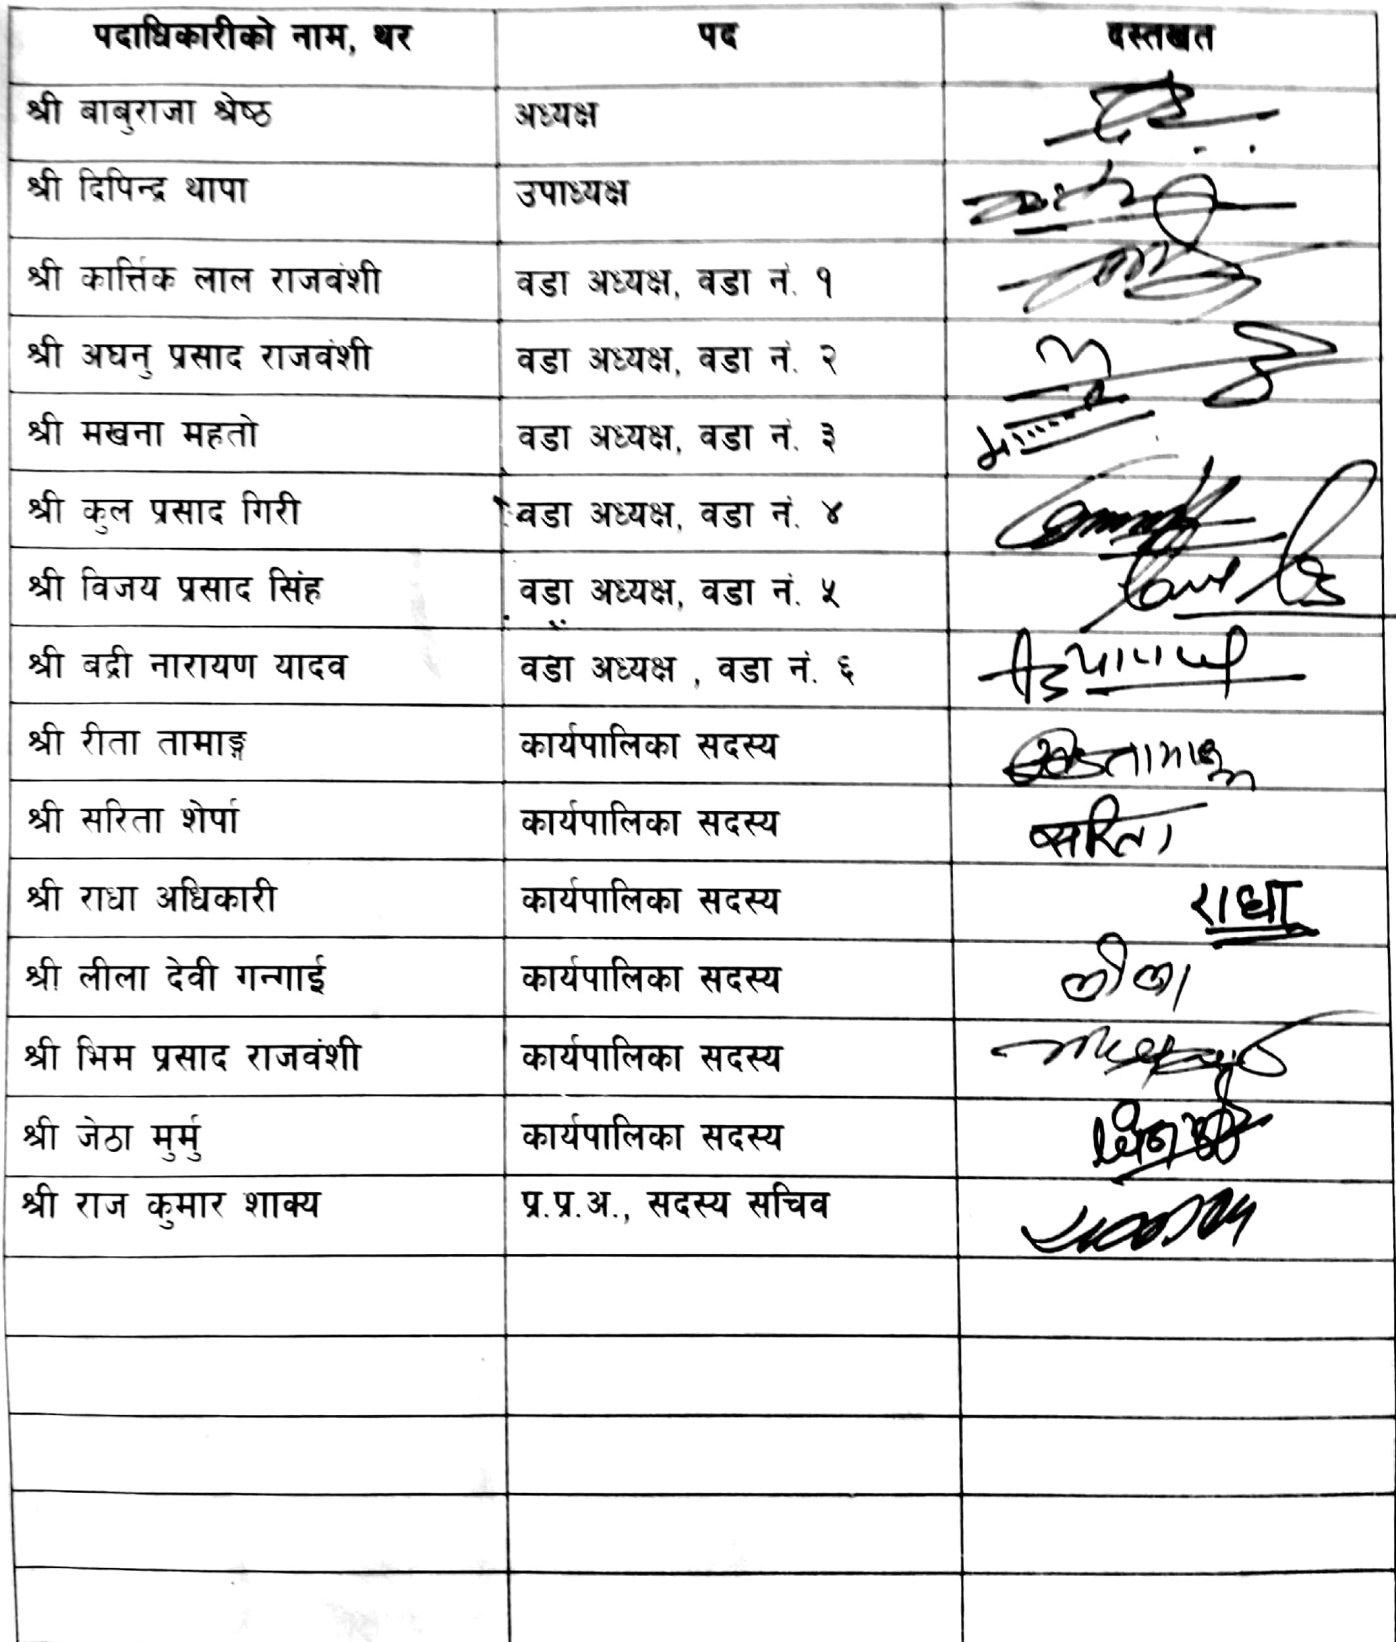 पदाधिकारीको नाम, थर पद दस्तखत
श्री बाबुराजा श्रेष्ठ अध्यक्ष
श्री दिपिन्द्र थापा उपाध्यक्ष
श्री कार्त्तिक लाल राजवंशी वडा अध्यक्ष, वडा नं. १
श्री अघनु प्रसाद राजवंशी वडा अध्यक्ष, वडा नं. २
श्री मखना महतो वडा अध्यक्ष, वडा नं. ३
श्री कुल प्रसाद गिरी वडा अध्यक्ष, वडा नं. ४
श्री विजय प्रसाद सिंह वडा अध्यक्ष, वडा नं. ५
श्री बद्री नारायण यादव वडा अध्यक्ष , वडा नं. ६
श्री रीता तामाङ्ग कार्यपालिका सदस्य
श्री सरिता शेर्पा कार्यपालिका सदस्य सरिता
श्री राधा अधिकारी कार्यपालिका सदस्य राधा
श्री लीला देवी गन्गाई कार्यपालिका सदस्य लीला
श्री भिम प्रसाद राजवंशी कार्यपालिका सदस्य
श्री जेठा मुर्मु कार्यपालिका सदस्य
श्री राज कुमार शाक्य प्र.प्र.अ., सदस्य सचिव